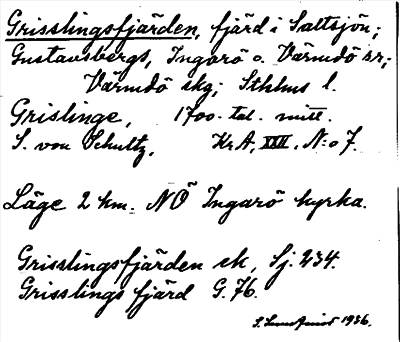 Grisslingsfjärden, fjärd i Saltsjön;
Gustavsbergs, Ingarö o. Värmdö snr;
Värmdö skg; Sthlms l.
Grislinge, 1700-tal. mitt
S. von Schultz, Kr A, XXII, N:o 7.
Läge 2 km. NÖ Ingarö kyrka.
Grisslingsfjärden ek, Sj. 234.
Grisslings fjärd G. 76.
1936.